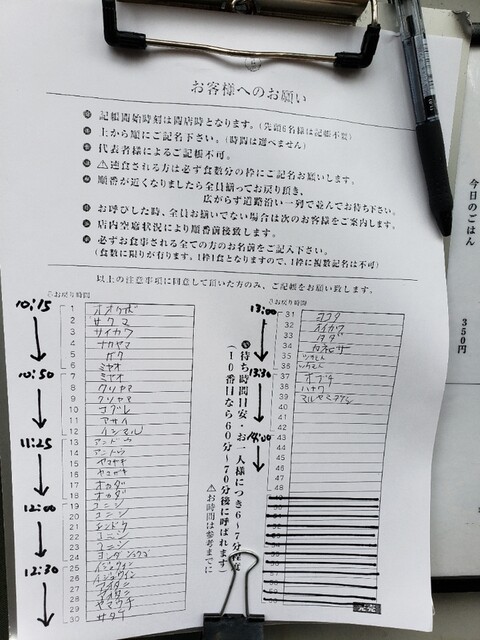 お客様へのお願い
記帳開始時刻は開店時となります。(先頭6名様は記帳不要)
上から順にご記名下さい。(時間は選べません)
代表者様によるご記帳不可。
⚠連食される方は必ず食数分の枠にご記名お願いします。
順番が近くなりましたら全員揃ってお戻り頂き、
広がらず道路沿い一列で並んでお待ち下さい。
お呼びした時、全員お揃いでない場合は次のお客様をご案内します。
店内空席状況により順番前後致します。
必ずお食事される全ての方のお名前をご記入下さい。
(食数に限りが有ります。1枠1食となりますので、1枠に複数記名は不可)
以上の注意事項に同意して頂いた方のみ、ご記帳をお願い致します。
お戻り時間
10:15
10:50
11:25
12:00
12:30
1 オオクボ
2 サクマ
3 サイカワ
4 ナカヤマ
5
6 ミヤオ
7 ミヤオ
8 クリヤマ
9 クリヤマ
10 コブレ
11 アサイ
12 イシマル
13 アンドウ
14 アンドウ
15 ヤマザキ
16 ヤマザキ
17 オカダ
18 オカダ
19 コニシ
20 コニシ
21 シンドウ
22 コニシ
23 コニシ
24
25
26
27
28
29 ヤマウチ
30 サタケ
待ち時間目安・お一人様につき6~7分程度
(10番目なら60分~70分後に呼ばれます)
⚠お時間は参考までに
お戻り時間
13:00
13:30
14:00
31 ヨコタ
32
33
34 カネヒサ
35
36
37 オブチ
38 ハヤワ
39
40
41
42
43
44
45
46
47
48
完売
今日のごはん
350円